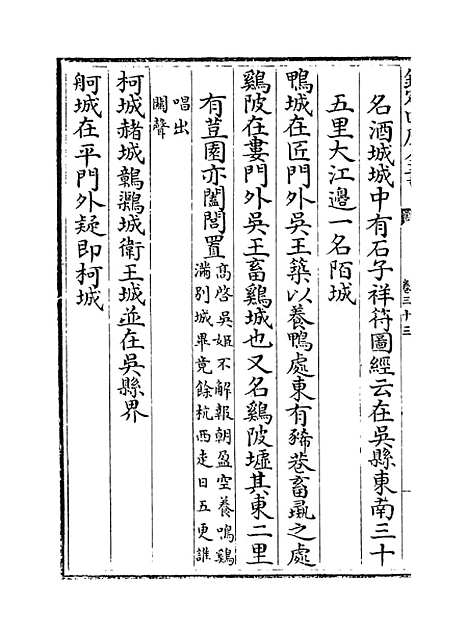 欽定四庫全書
卷三十三
名酒城城中有石子祥符圖經云在吳縣東南三十
五里大江邊一名陌城
鴨城在匠門外吳王築以養鴨處東有豨巷畜彘之處
鷄陂在婁門外吳王畜鷄城也又名鷄陂墟其東二里
有荳園亦闔閭置
高啓吳姬不解報朝盈空養鳴鷄
滿別城畢竟餘杭西走日五更誰
唱出
關聲
柯城赭城鷯鷯城衛王城並在吳縣界
舸城在平門外疑即柯城